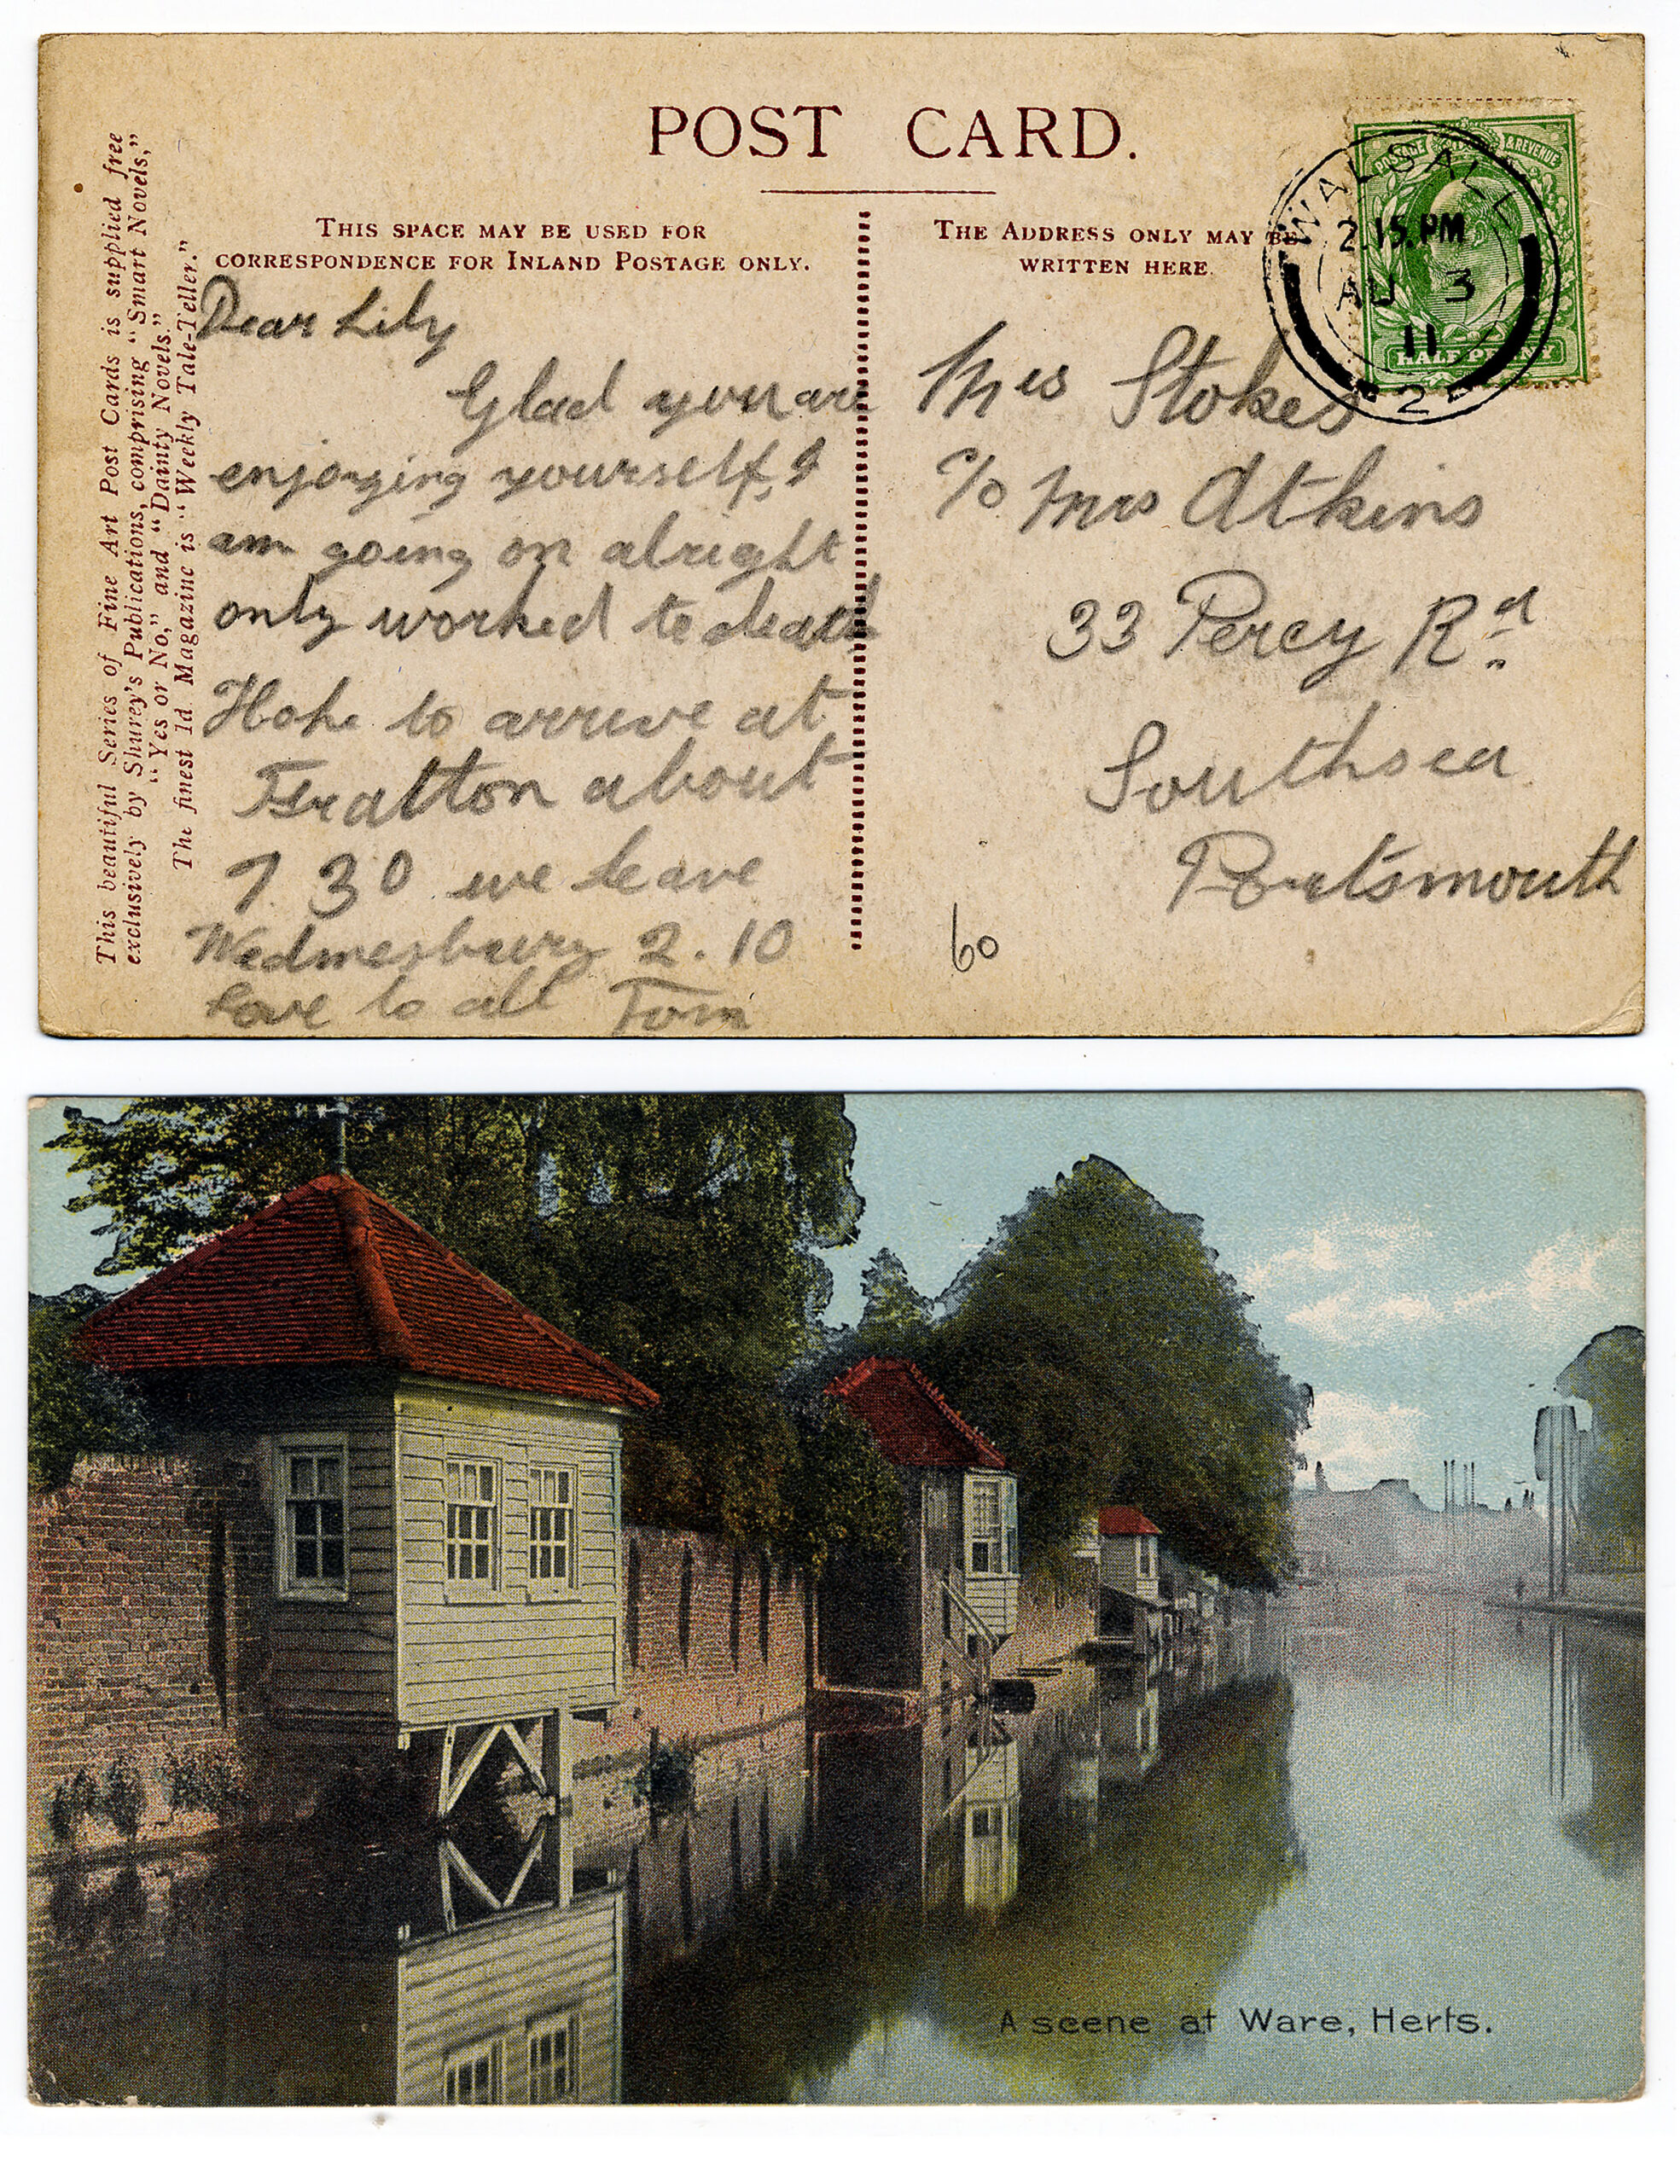 POST CARD.
THIS SPACE MAY BE USED FOR
CORRESPONDENCE FOR INLAND POSTAGE ONLY.
THE ADDRESS ONLY MAY BE
WRITTEN HERE.
This beautiful Series of Fine Art Post Cards is supplied free
exclusively by Shurey's Publications, comprising "Smart Novels,"
"Yes or No," and "Dainty Novels."
The finest 1d Magazine is "Weekly Tale-Teller."
Dear Lily
Glad you are
enjoying yourself, I
am going on alright
only worked to death
Hope to arrive at
Fratton about
7 30 we leave
Wednesbury 2.10
Love to all Tom
POSTAGE & REVENUE
HALF PENNY
WALSALL
2.15.PM
AU 3
11
2
Mrs Stokes
c/o Mrs Atkins
33 Percy Rd
Southsea
Portsmouth
60
A scene at Ware, Herts.